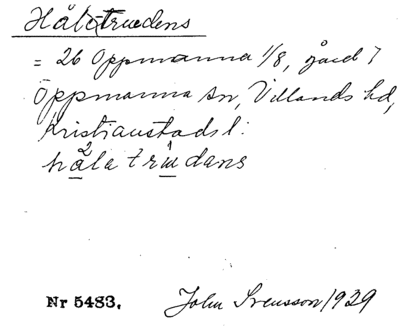 Hålatruedens
= 26 Oppmanna 1/8, gård i
Oppmanna sn, Villands hd,
Kristianstads l:
håla truedans
Nr 5483.
John Svensson 1929